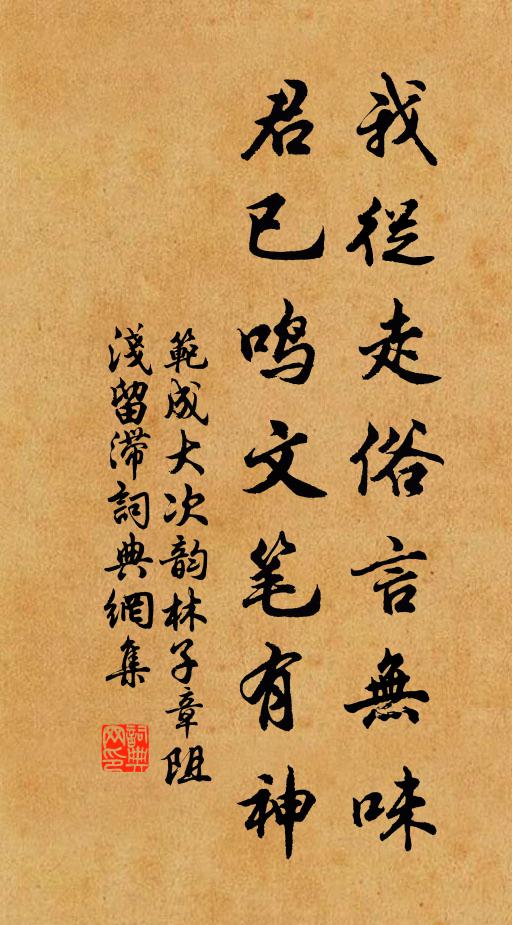 我從走俗言無味
君已鸣文笔有神
範成大次韵林子章阻
淺留滞詞典網集
詞典网印